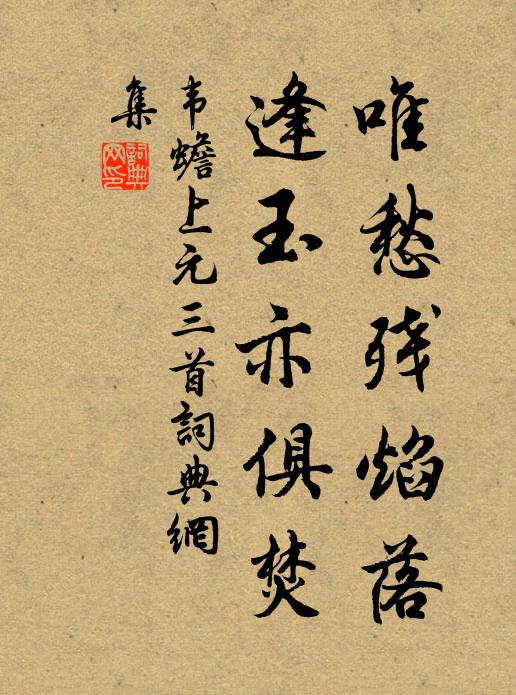 唯愁残焰落
逢玉亦俱焚
韦蟾上元三首詞典網
集
詞典網印